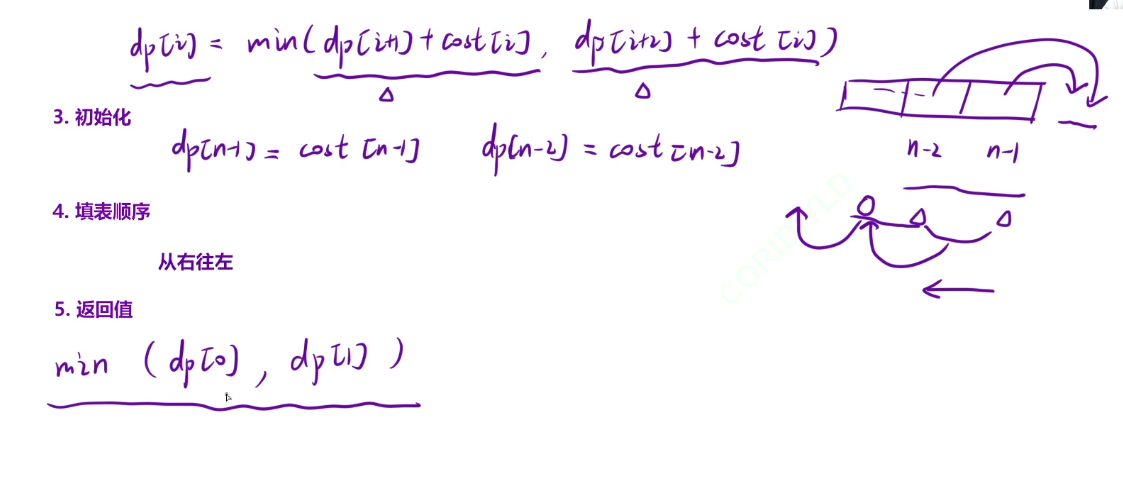 dp[i] = min(dp[i+1] + cost[i], dp[i+2] + cost[i])
3. 初始化
dp[n-1] = cost[n-1] dp[n-2] = cost[n-2]
n-2 n-1
4. 填表顺序
从右往左
5. 返回值
min (dp[0], dp[1])